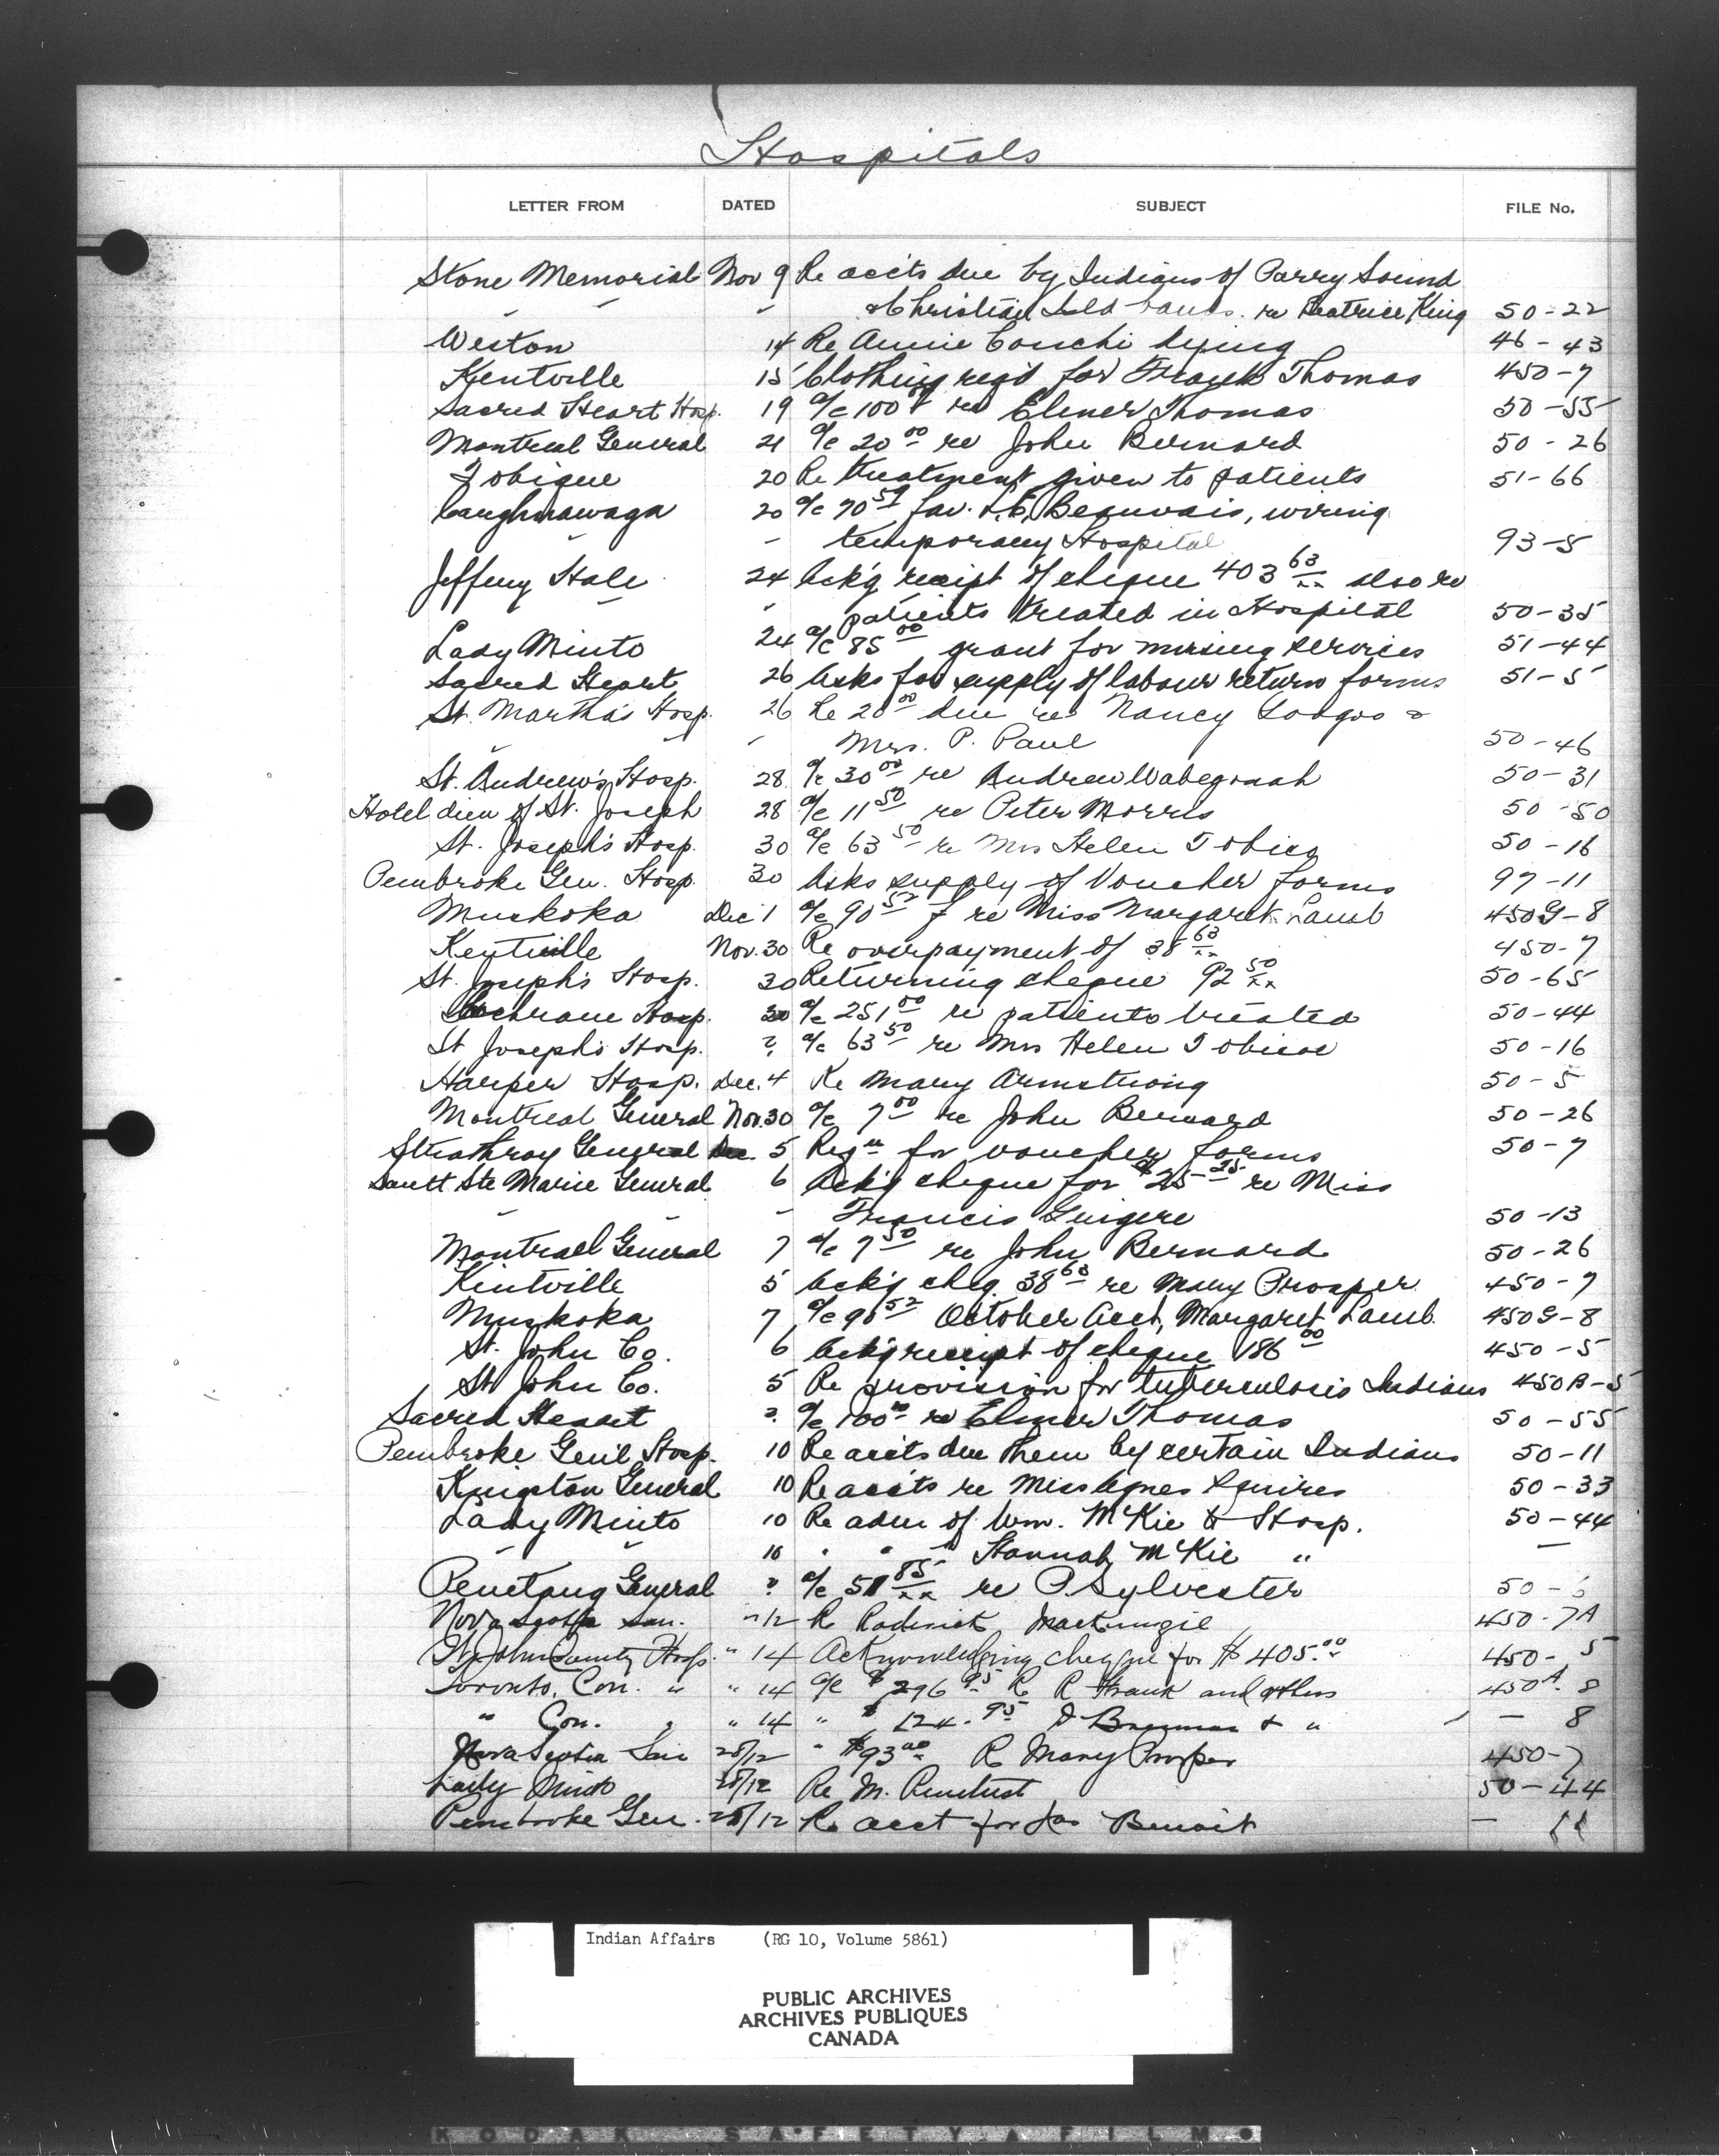 Hospitals
LETTER FROM DATED SUBJECT FILE No.
Stone Memorial Nov 9 Re accts due by Indians of Parry Sound
- - & Christian Isld bands. re Beatrice King 50-22
Weston 14 Re Annie Conchi dying 46-43
Kentville 15 Clothing reqd for Frank Thomas 450-7
Sacred Heart Hosp. 19 a/c 100 re Elmer Thomas 50-55
Montreal General 21 a/c 20 00 re John Bernard 50-26
Tobique 20 Re treatment given to patients 51-66
Caughnawaga 20 a/c 70 59 fav. Beauvais, wiring
- - temporary Hospital 93-5
Jeffery Hale 24 Ack'g receipt of cheque 403 63/xx also re
- - patients treated in Hospital 50-35
Lady Minto 24 a/c 85 00 grant for nursing services 51-44
Sacred Heart 26 Asks for supply of labour return forms 51-5
St. Martha's Hosp. 26 Re 20 00 due re Nancy Googoo &
- - Mrs. P. Paul 50-46
St. Andrew's Hosp. 28 a/c 30 00 re Andrew Wabegoash 50-31
Hotel dieu of St. Joseph 28 a/c 11 50 re Peter Morris 50-50
St. Joseph's Hosp. 30 a/c 63 50 re Mrs Helen Tobico 50-16
Pembroke Gen. Hosp. 30 Asks supply of Voucher forms 97-11
Muskoka Dec 1 a/c 90 52 re Miss Margaret Lamb 450G-8
Kentville Nov. 30 Re overpayment of 38 63/xx 450-7
St. Joseph's Hosp. 30 Returning cheque 92 50/xx 50-65
Cochrane Hosp. 30 a/c 251 00 re patients treated 50-44
St Joseph's Hosp. ? a/c 63 50 re Mrs Helen Tobicoe 50-16
Harper Hosp. Dec. 4 Re Mary Armstrong 50-5
Montreal General Nov. 30 a/c 7 00 re John Bernard 50-26
Strathroy General Dec. 5 Reqn for voucher forms 50-7
Sault Ste Marie General 6 Ack'g cheque for $25 25 re Miss
- - Francis Guigere 50-13
Montreal General 7 a/c 7 50 re John Bernard 50-26
Kentville 5 Ack'g cheq. 38 63 re Mary Prosper 450-7
Muskoka 7 a/c 90 52 October Acct, Margaret Lamb. 450G-8
St. John Co. 6 Ack'g receipt of cheque 186 00 450-5
St John Co. 5 Re provision for tuberculosis Indians 450B-5
Sacred Heart ? a/c 100 00 re Elmer Thomas 50-55
Pembroke Gen'l Hosp. 10 Re accts due them by certain Indians 50-11
Kingston General 10 Re accts re Miss Agnes Squires 50-33
Lady Minto 10 Re adm of Wm. McKie to Hosp. 50-44
- - 10 " " " Hannah McKie " —
Penetang General ? a/c 51 85/xx re P. Sylvester 50-6
Nova Scotia San. "12 Re Roderick MacKenzie 450-7A
St. John County Hosp. " 14 Acknowledging cheque for $405.00 450-5
Toronto, Con. " " 14 a/c $296 95 Re R Frank and others 450A-8
" Con. " " 14 " $124.95 & " — 8
Nova Scotia San 28/12 " $93 00 Re Mary Prosper 450-7
Lady Minto 28/12 Re M. 50-44
Pembroke Gen. 28/12 Re acct for Jas Benoit — 11
Indian Affairs (RG 10, Volume 5861)
PUBLIC ARCHIVES
ARCHIVES PUBLIQUES
CANADA
KODAK SAFETY FILM